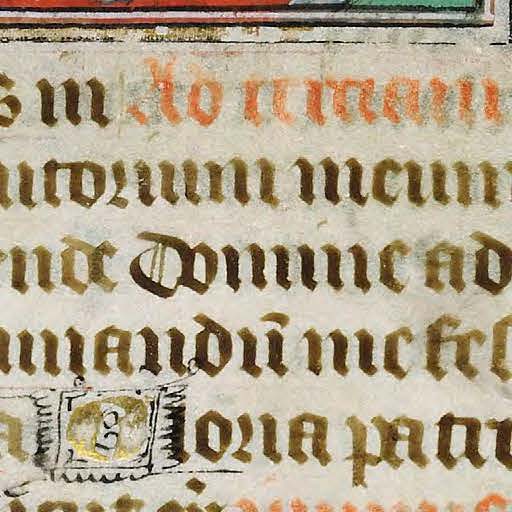 s in Ad tertiam
iutorium meum
ende Domine ad
iuuandū me fes
a Gloria patri